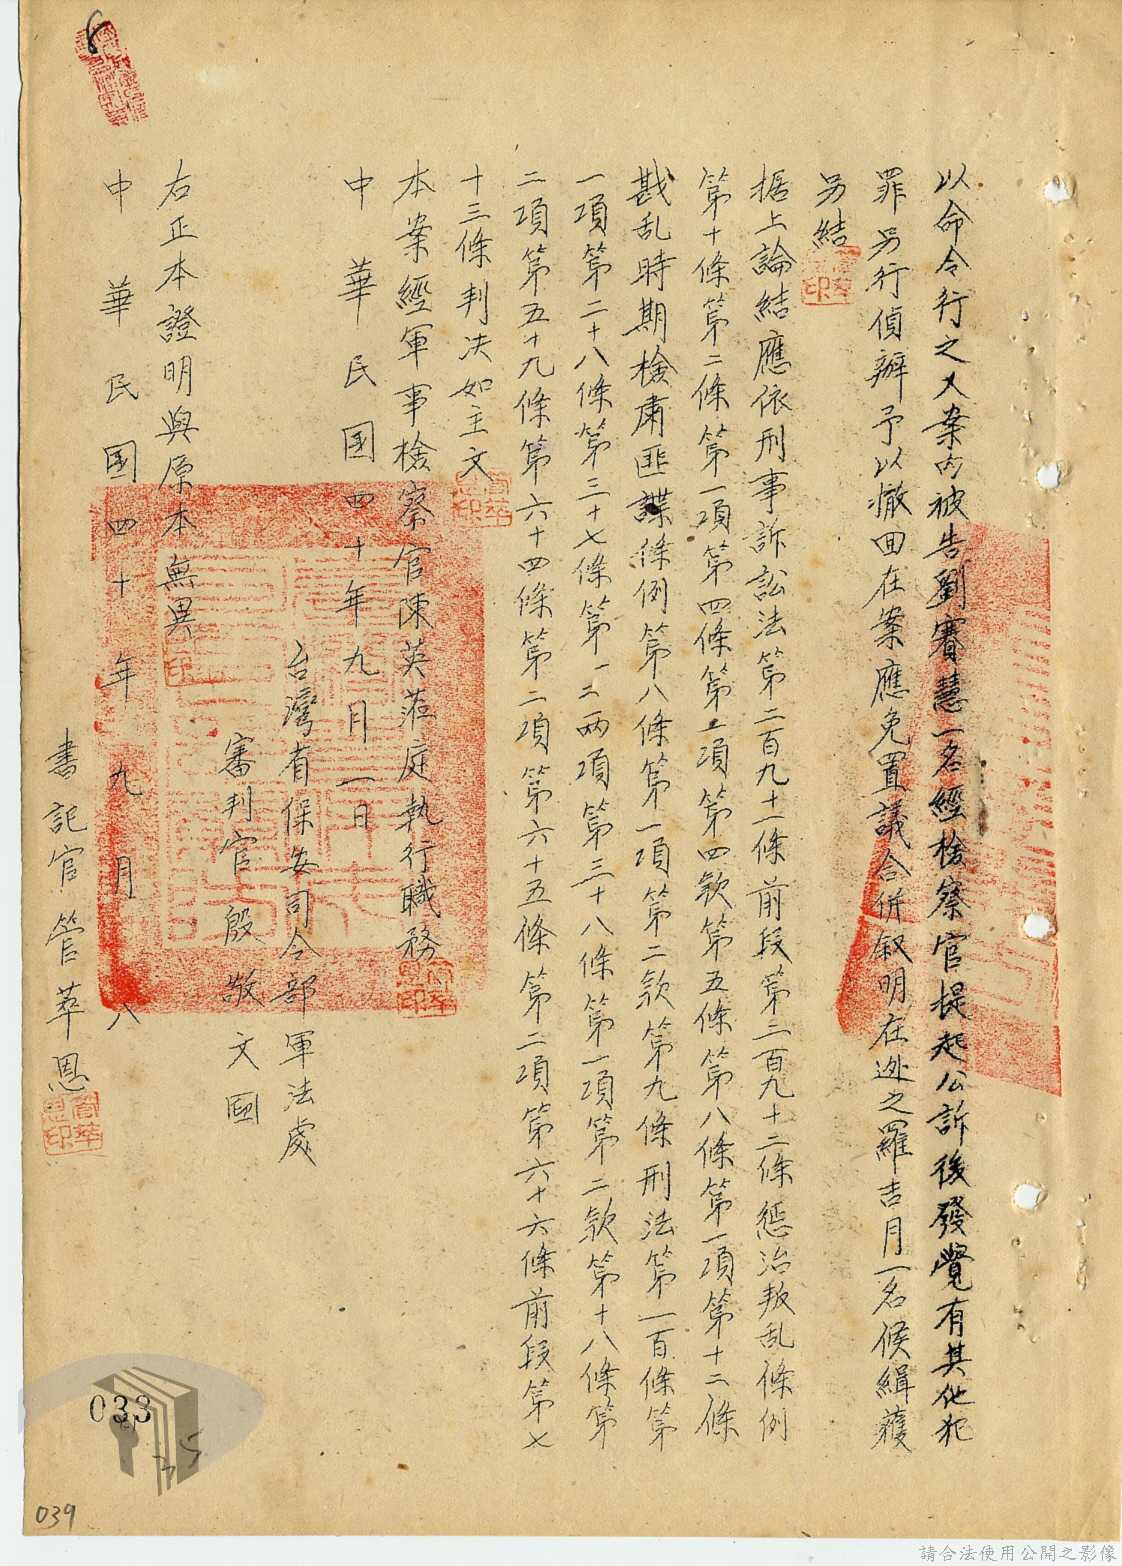 以命令行之又案內被告劉賽慧一名經檢察官提起公訴後發覺有其他犯
罪另行偵辦予以撤回在案應免置議合併敘明在逃之羅吉月一名候緝獲
另結
据上論結應依刑事訴訟法第二百九十一條前段第三百九十二條懲治叛乱條例
第十條第二條第一項第四條第一項第四款第五條第八條第一項第十二條
戡乱時期檢肅匪諜條例第八條第一項第二款第九條刑法第一百條第
一項第二十八條第三十七條第一二兩項第三十八條第一項第二款第十八條第
二項第五十九條第六十四條第二項第六十五條第二項第六十六條前段第七
十三條判决如主文
本案經軍事檢察官陳英蒞庭執行職務
中華民國四十年九月一日
台灣省保安司令部軍法處
審判官殷敬文
右正本證明與原本無異
中華民國四十年九月八
書記官管萃恩
033
35
039
請合法使用公開之影像